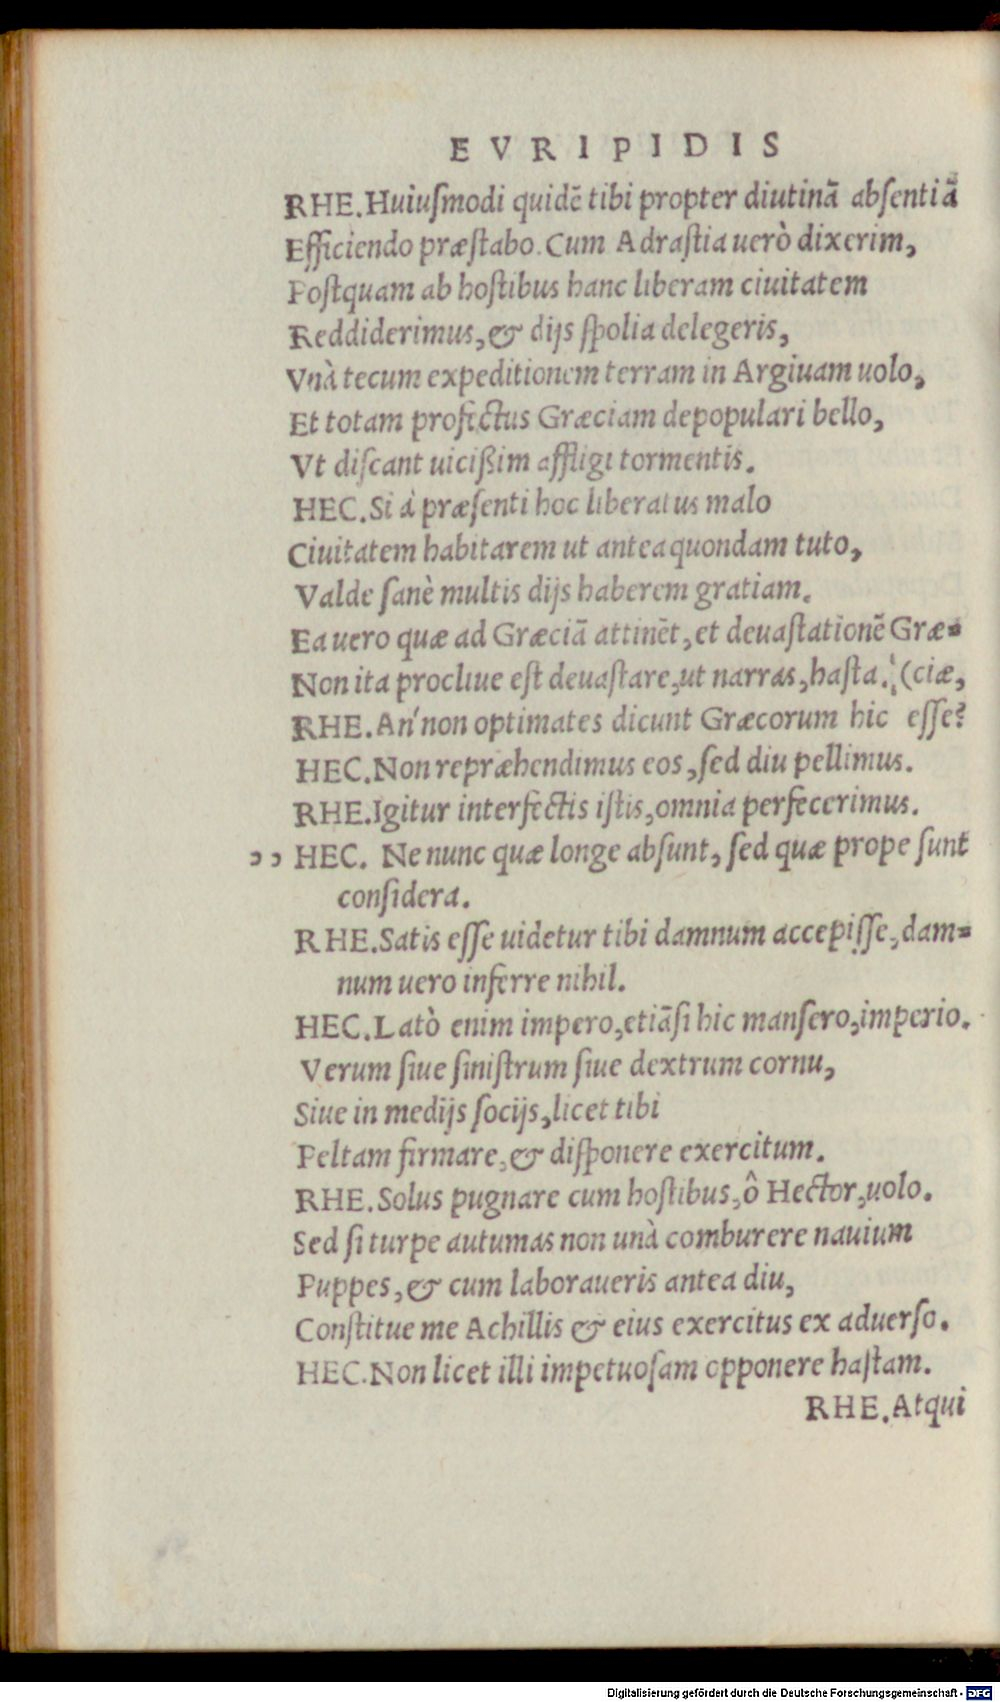 EVRIPIDIS
RHE. Huiuſmodi quidē tibi propter diutinā abſentiā
Efficiendo præſtabo. Cum Adraſtia uerò dixerim,
Poſtquam ab hoſtibus hanc liberam ciuitatem
Reddiderimus, & dijs ſpolia delegeris,
Vnà tecum expeditionem terram in Argiuam uolo,
Et totam profectus Græciam depopulari bello,
Vt diſcant uicißim affligi tormentis.
HEC. Si à præſenti hoc liberatus malo
Ciuitatem habitarem ut antea quondam tuto,
Valde ſanè multis dijs haberem gratiam.
Ea uero quæ ad Græciā attinēt, et deuaſtationē Græ=
Non ita procliue eſt deuaſtare, ut narras, haſta. (ciæ,
RHE. An' non optimates dicunt Græcorum hic eſſe?
HEC. Non repræhendimus eos, ſed diu pellimus.
RHE. Igitur interfectis iſtis, omnia perfecerimus.
,, HEC. Ne nunc quæ longe abſunt, ſed quæ prope ſunt
conſidera.
RHE. Satis eſſe uidetur tibi damnum accepiſſe, dam=
num uero inferre nihil.
HEC. Latò enim impero, etiāſi hic manſero, imperio.
Verum ſiue ſiniſtrum ſiue dextrum cornu,
Siue in medijs ſocijs, licet tibi
Peltam firmare, & diſponere exercitum.
RHE. Solus pugnare cum hoſtibus, ô Hector, uolo.
Sed ſi turpe autumas non unà comburere nauium
Puppes, & cum laboraueris antea diu,
Conſtitue me Achillis & eius exercitus ex aduerſo.
HEC. Non licet illi impetuoſam opponere haſtam.
RHE. Atqui
Digitalisierung gefördert durch die Deutsche Forschungsgemeinschaft - DFG